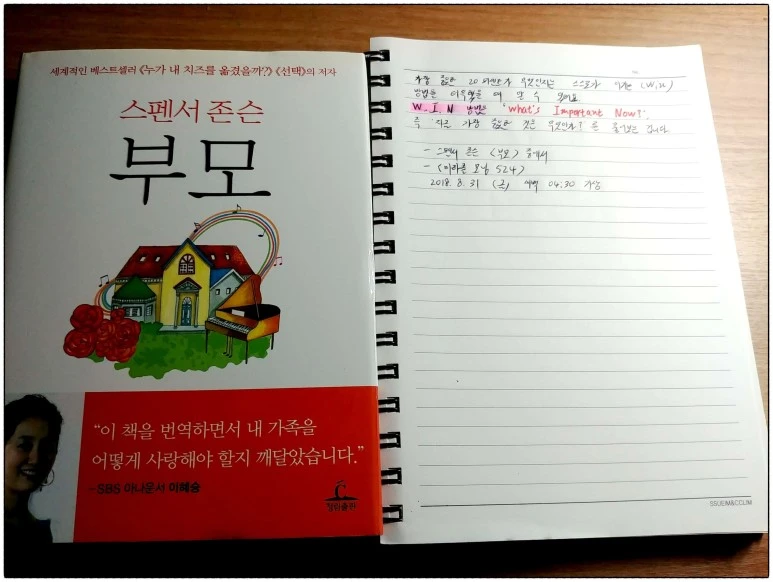 세계적인 베스트셀러 《누가 내 치즈를 옮겼을까?》《선택》의 저자
스펜서 존슨
부모
“이 책을 번역하면서 내 가족을
어떻게 사랑해야 할지 깨달았습니다.”
-SBS 아나운서 이혜승
청림출판
가장 중요한 20 무엇인지는 스스로가 (W.I.N)
방법을 이용했을 때 알 수 있어요
W.I.N 방법은 'What's Important Now?'.
즉 지금 가장 중요한 것은 무엇인가? 를 물어보는 겁니다
- 스펜서 존슨 <부모> 중에서
- <미라클 모닝 524>
2018. 8. 31 (금) 새벽 04:30 기상
SSUEIM&CCLIM